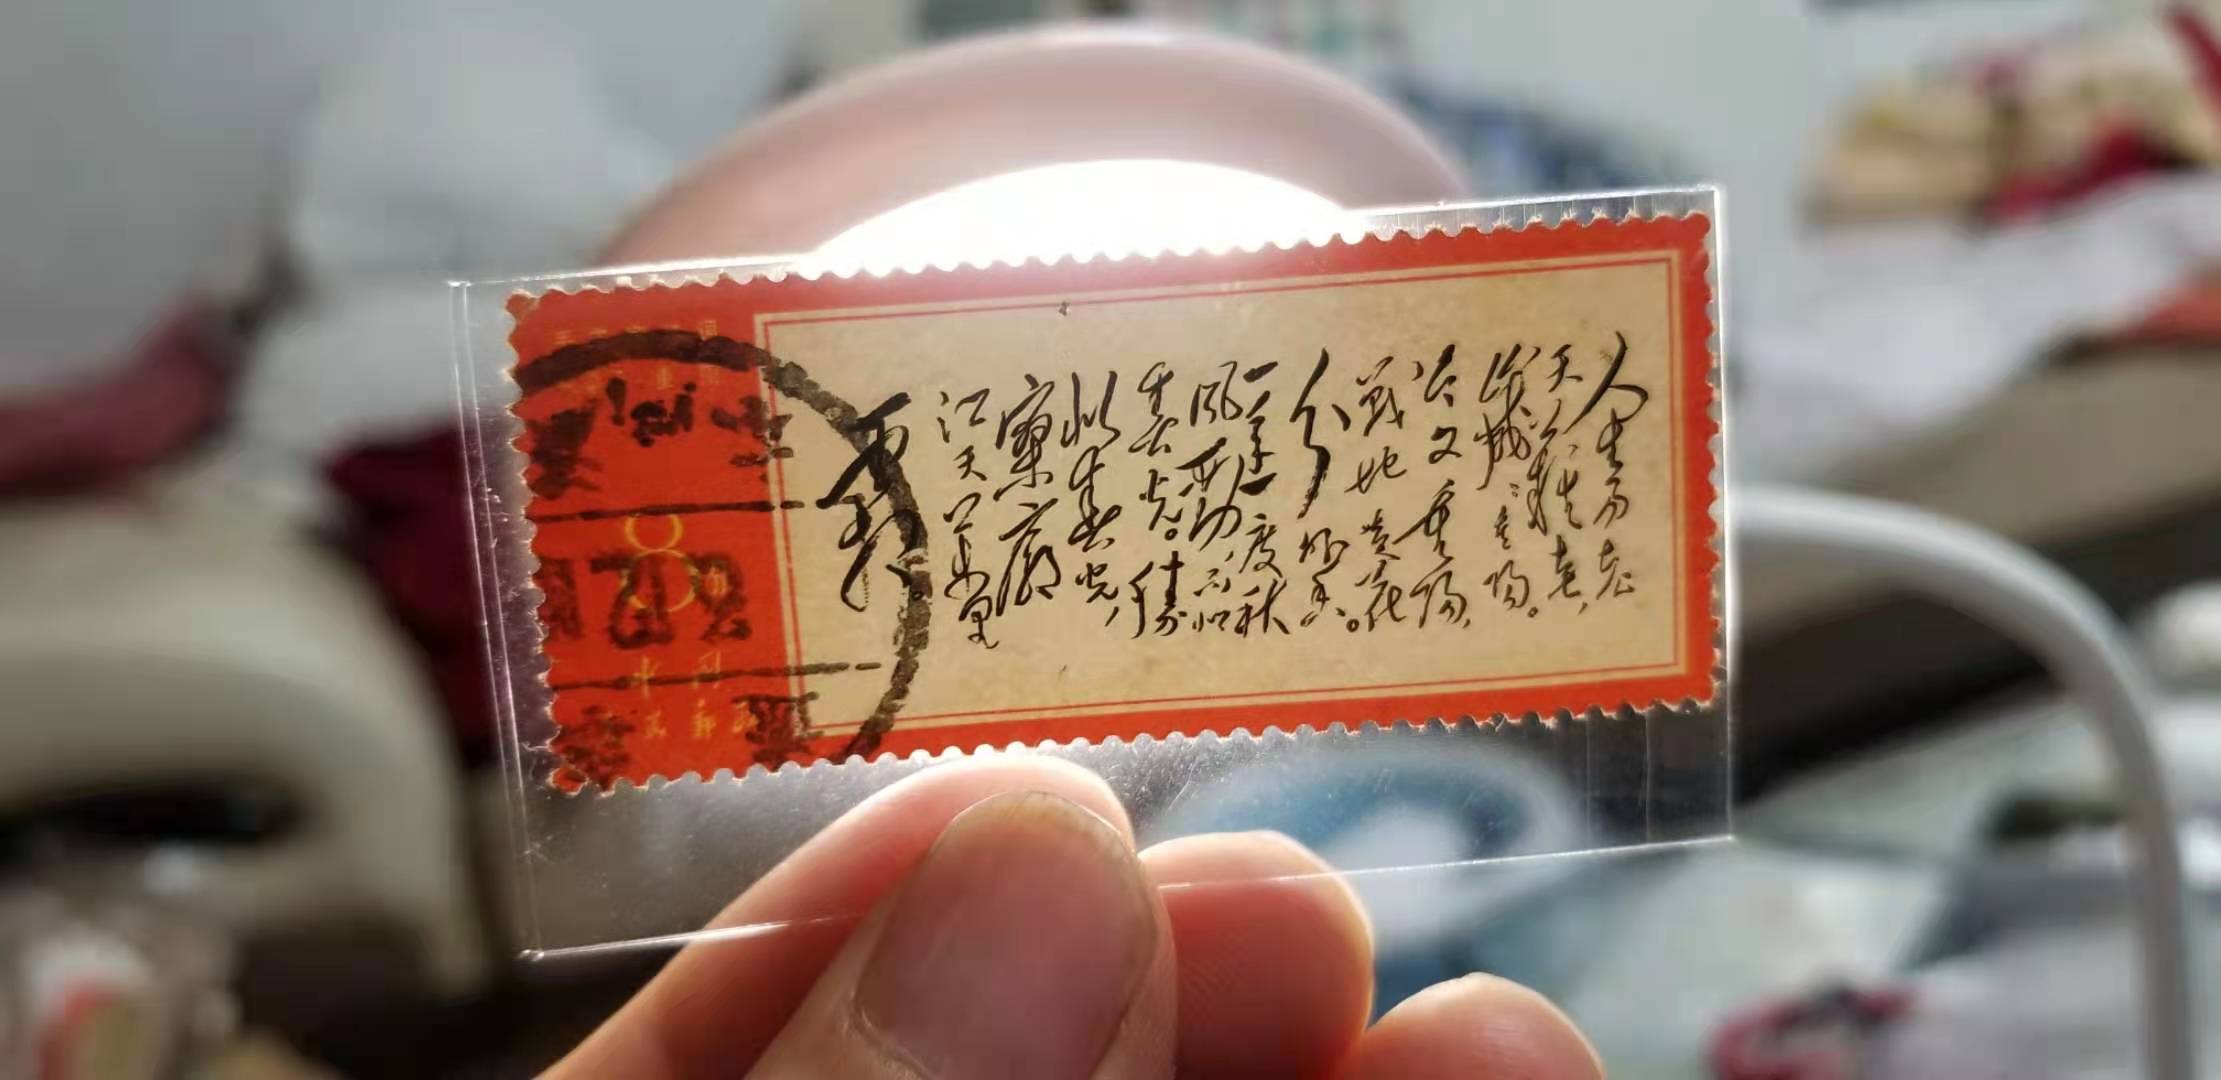 人生易老
天难老,
岁岁重阳。
今又重阳,
战地黄花
分外香。
一年一度秋
风劲,不似
春光。胜
似春光,
寥廓
江天万里
霜。
8